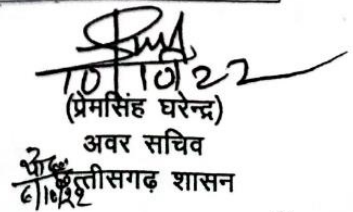 10/10/22
(प्रेमसिंह घरेन्द्र)
अवर सचिव
छत्तीसगढ़ शासन
6/10/22